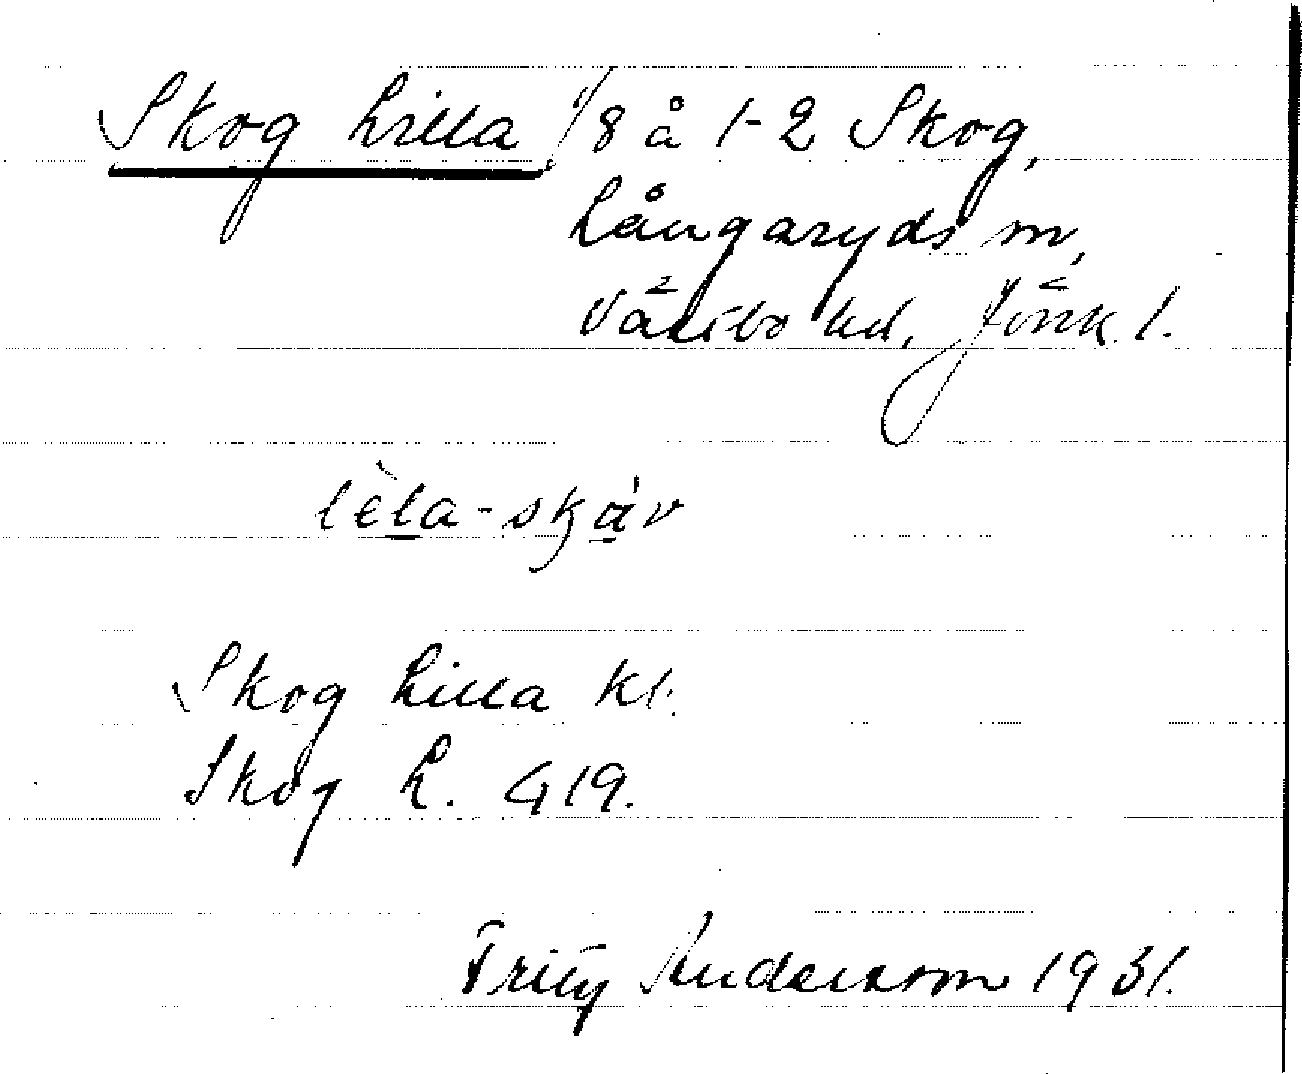 Skog Lilla, 1/8 å 1-2 Skog,
Långaryds sn,
Västbo hd, Jönk. l.
lèla-skáv
Skog Lilla kt.
Skog L. G 19.
Fritz Andersson 1931.